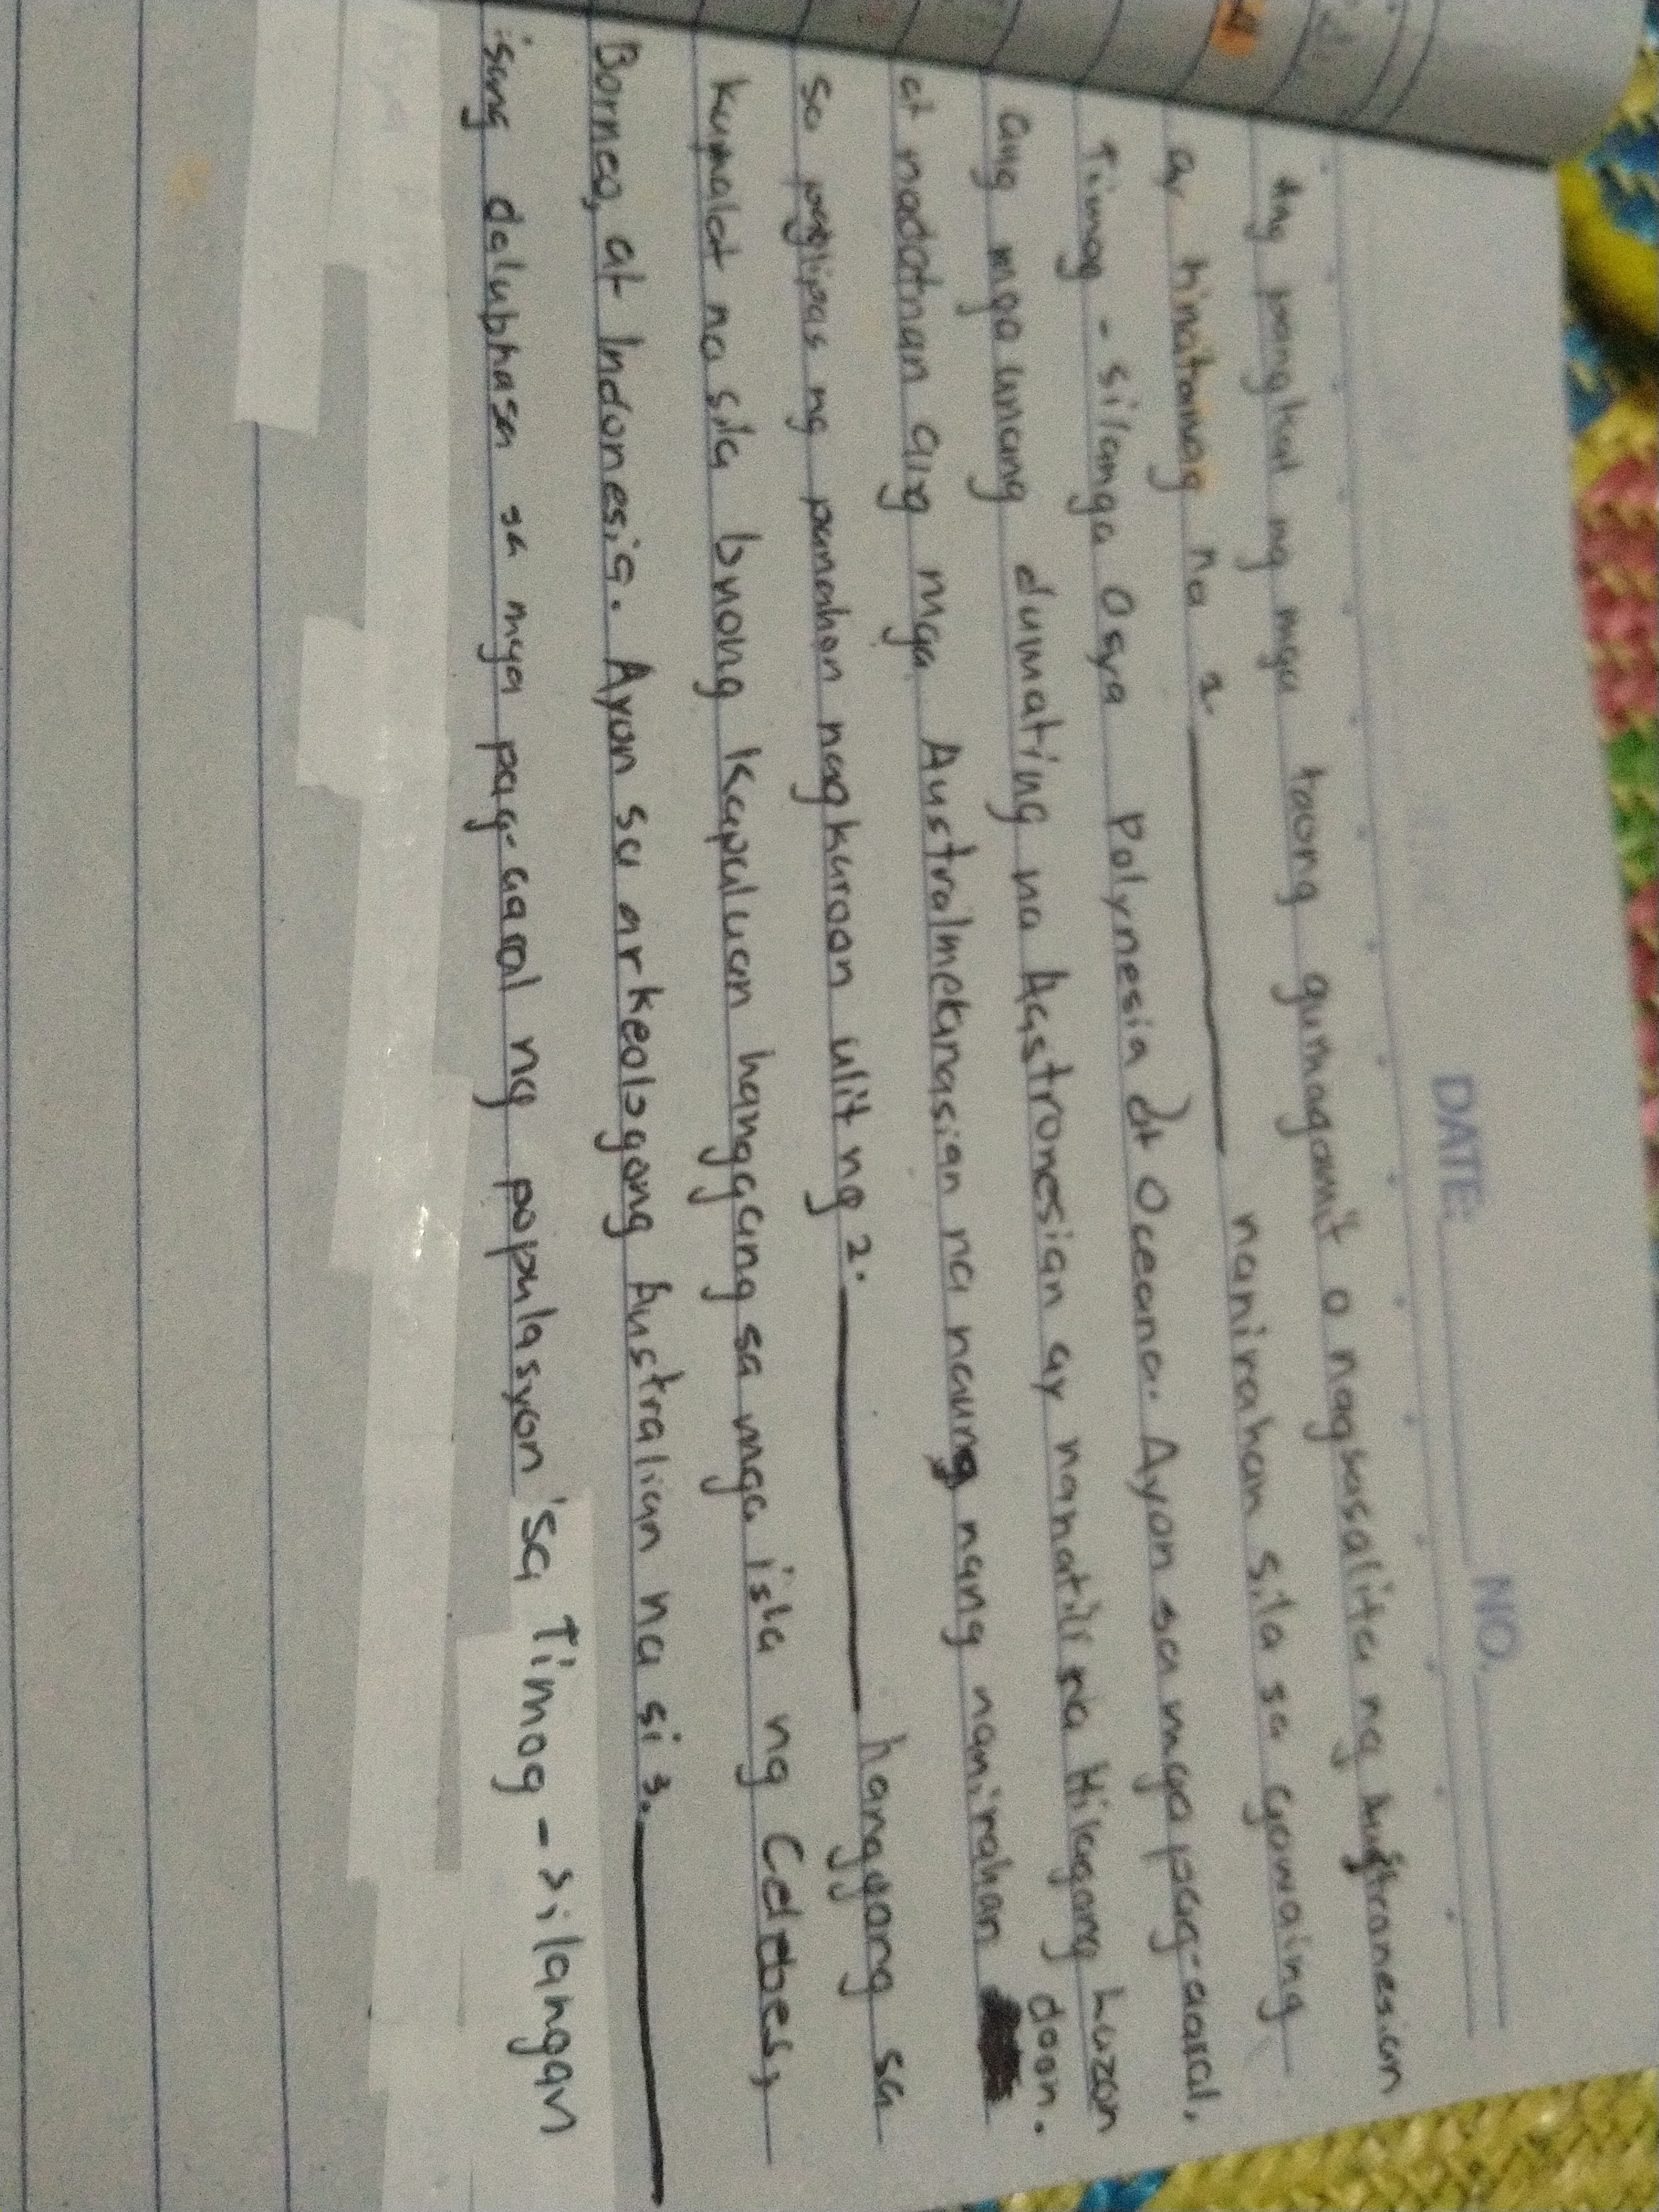 DATE: NO.
Ang pangkat ng mga taong gumagamit o nagsasalita ng Austronesian
ay tinatawag na 1. ________ nanirahan sila sa gawaing
Timog - silanga Osya Polynesia at Oceana. Ayon sa mga pag-aaral,
ang mga unang dumating na Aastronesian ay nanatili sa Hilagang Luzon
at nadatnan ang mga Australmekanasian na naung nang nanirahan doon.
sa paglipas ng panahon nagkaroon ulit ng 2. ________ hanggang sa
kumalat na sila bnong Kapuluan hanggang sa mga isla ng Celebes,
Borneo, at Indonesia. Ayon sa arkeologong Australian na si 3. ________
isang dalubhasa sa mga pag-aaral ng populasyon sa Timog - silangan